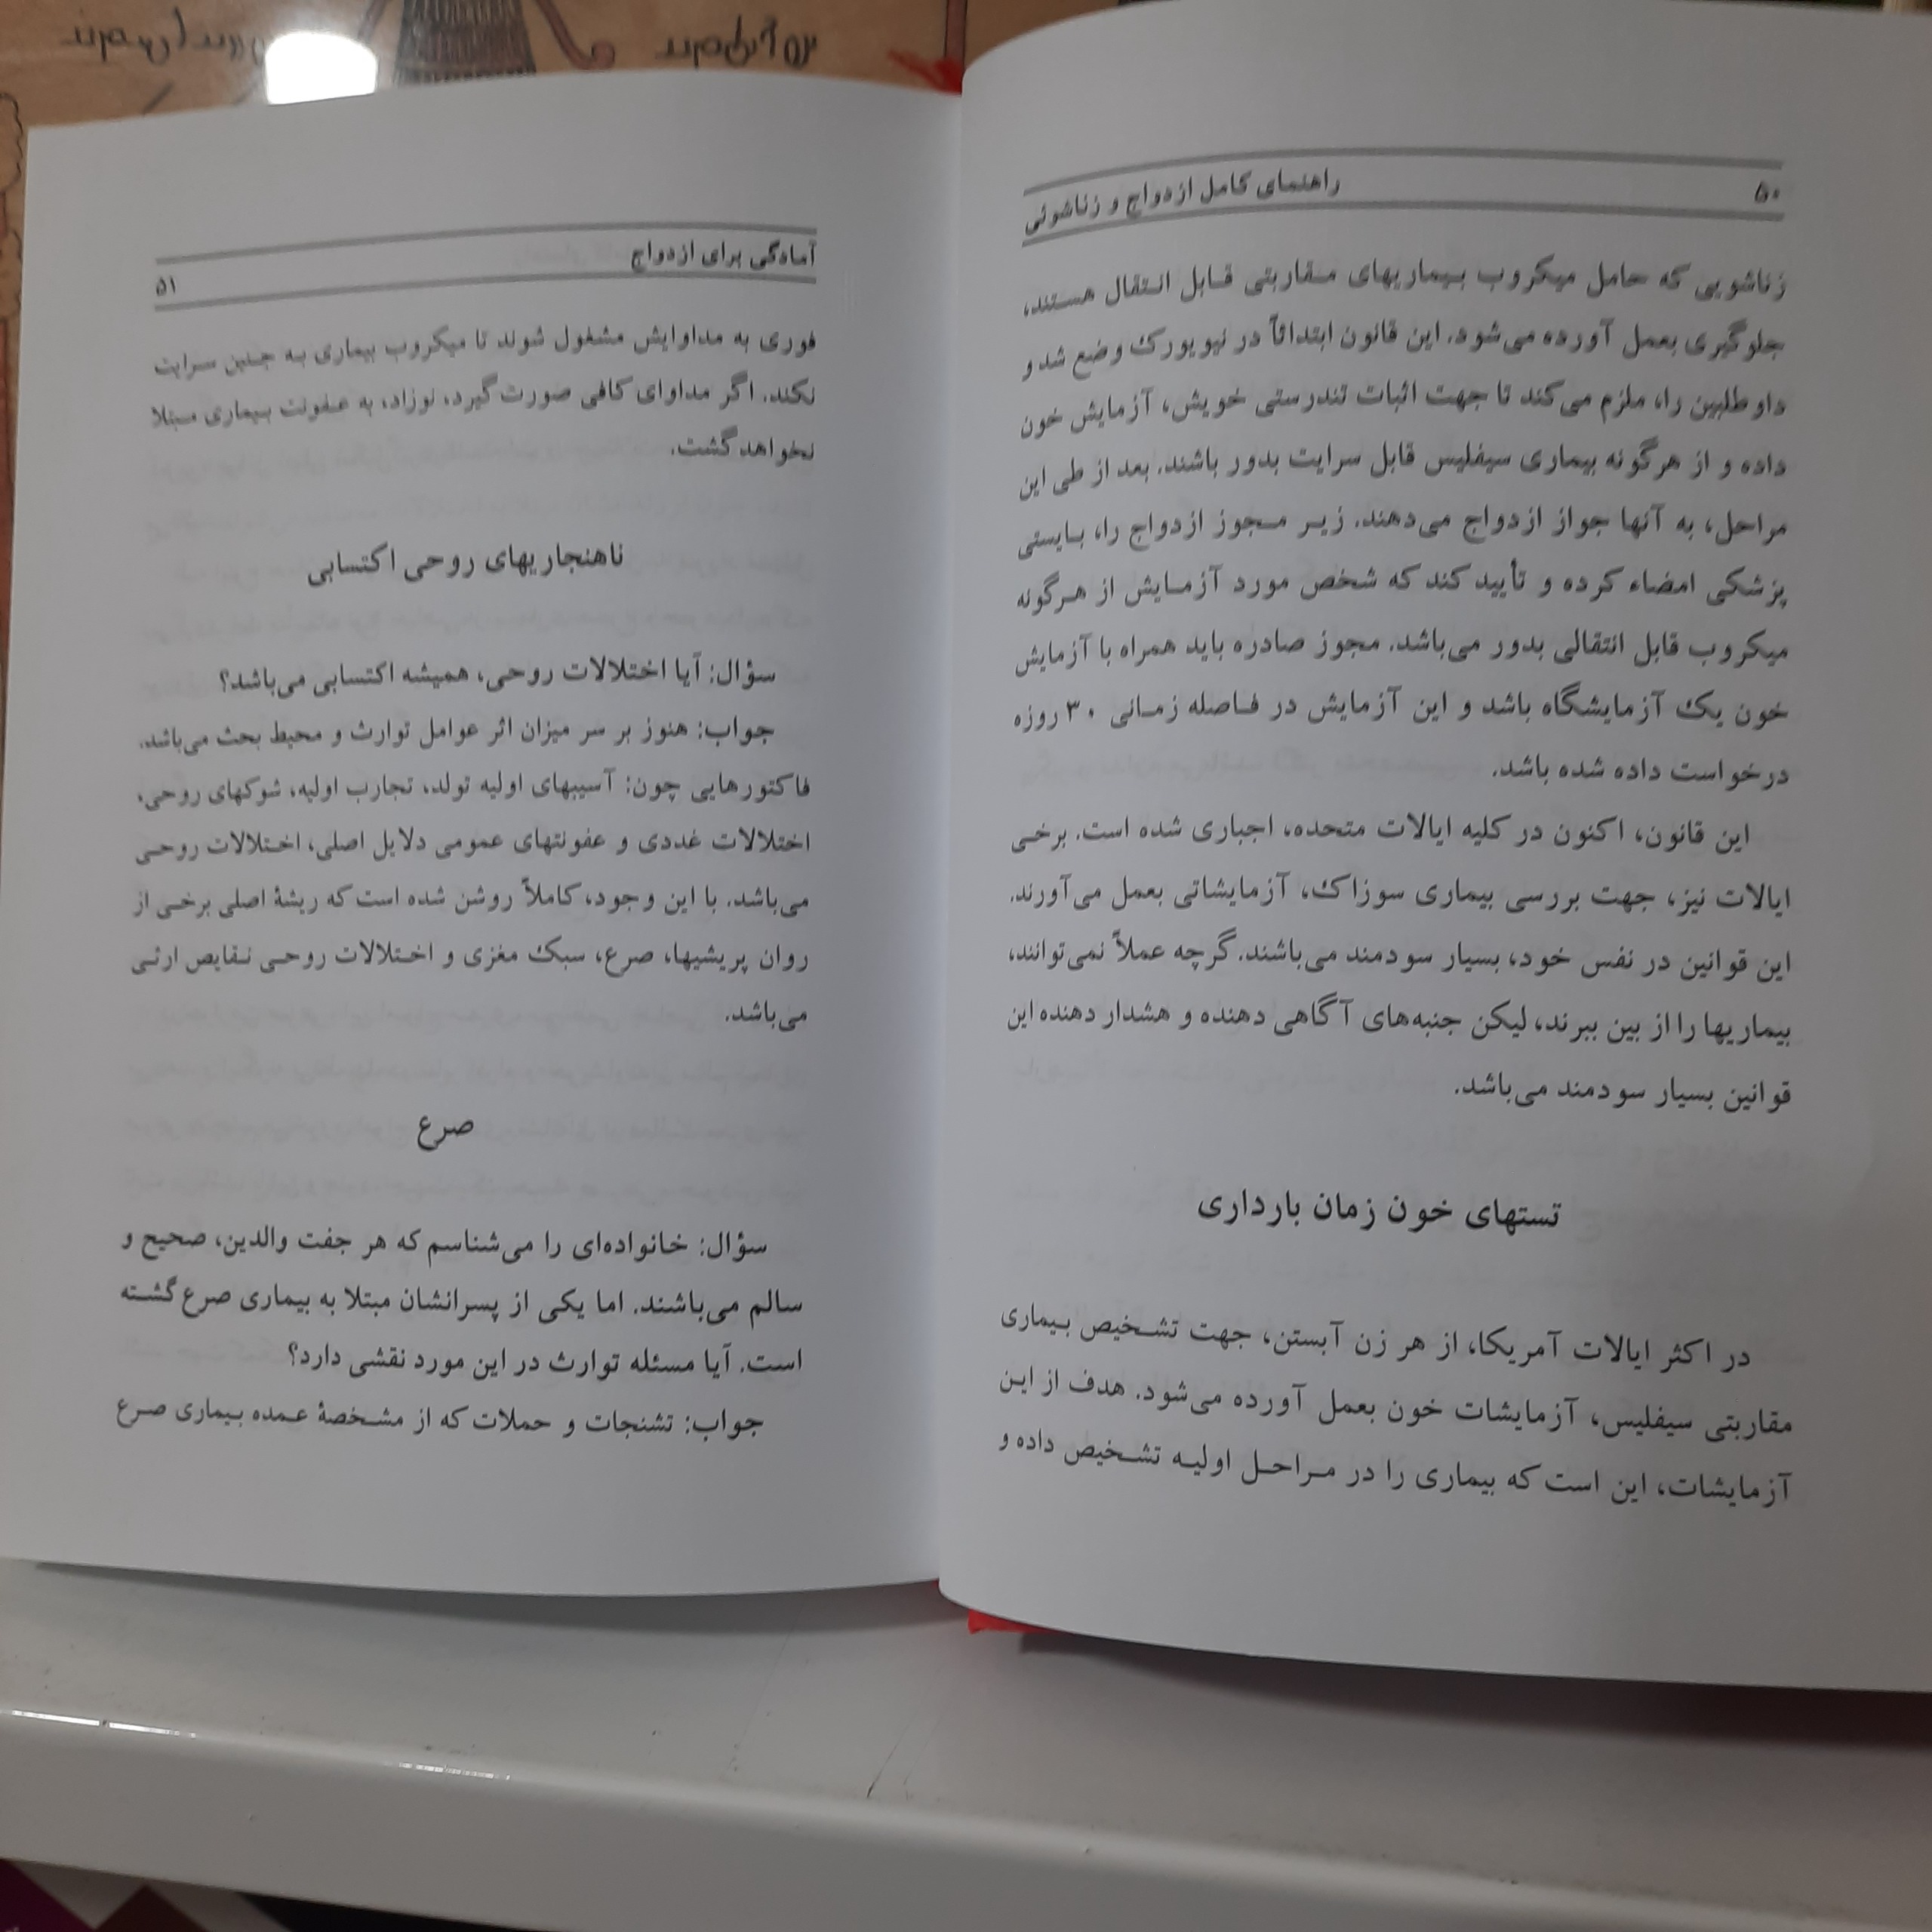 ۵۰
راهنمای کامل ازدواج و زناشوئی
زناشویی که حامل میکروب بیماریهای مقاربتی قابل انتقال هستند،
جلوگیری بعمل آورده می‌شود. این قانون ابتدائاً در نیویورک وضع شد و
داوطلبین را، ملزم می‌کند تا جهت اثبات تندرستی خویش، آزمایش خون
داده و از هرگونه بیماری سیفلیس قابل سرایت بدور باشند. بعد از طی این
مراحل، به آنها جواز ازدواج می‌دهند. زیر مجوز ازدواج را، بایستی
پزشکی امضاء کرده و تأیید کند که شخص مورد آزمایش از هرگونه
میکروب قابل انتقالی بدور می‌باشد. مجوز صادره باید همراه با آزمایش
خون یک آزمایشگاه باشد و این آزمایش در فاصله زمانی ۳۰ روزه
درخواست داده شده باشد.
این قانون، اکنون در کلیه ایالات متحده، اجباری شده است. برخی
ایالات نیز، جهت بررسی بیماری سوزاک، آزمایشاتی بعمل می‌آورند.
این قوانین در نفس خود، بسیار سودمند می‌باشند. گرچه عملاً نمی‌توانند،
بیماریها را از بین ببرند، لیکن جنبه‌های آگاهی دهنده و هشدار دهنده این
قوانین بسیار سودمند می‌باشد.
تستهای خون زمان بارداری
در اکثر ایالات آمریکا، از هر زن آبستن، جهت تشخیص بیماری
مقاربتی سیفلیس، آزمایشات خون بعمل آورده می‌شود. هدف از این
آزمایشات، این است که بیماری را در مراحل اولیه تشخیص داده و
آمادگی برای ازدواج
۵۱
فوری به مداوایش مشغول شوند تا میکروب بیماری به جنین سرایت
نکند. اگر مداوای کافی صورت گیرد، نوزاد، به عفونت بیماری مبتلا
نخواهد گشت.
ناهنجاریهای روحی اکتسابی
سؤال: آیا اختلالات روحی، همیشه اکتسابی می‌باشد؟
جواب: هنوز بر سر میزان اثر عوامل توارث و محیط بحث می‌باشد.
فاکتورهایی چون: آسیبهای اولیه تولد، تجارب اولیه، شوکهای روحی،
اختلالات غددی و عفونتهای عمومی دلایل اصلی، اختلالات روحی
می‌باشد. با این وجود، کاملاً روشن شده است که ریشهٔ اصلی برخی از
روان پریشیها، صرع، سبک مغزی و اختلالات روحی نقایص ارثی
می‌باشد.
صرع
سؤال: خانواده‌ای را می‌شناسم که هر جفت والدین، صحیح و
سالم می‌باشند. اما یکی از پسرانشان مبتلا به بیماری صرع گشته
است. آیا مسئله توارث در این مورد نقشی دارد؟
جواب: تشنجات و حملات که از مشخصهٔ عمده بیماری صرع